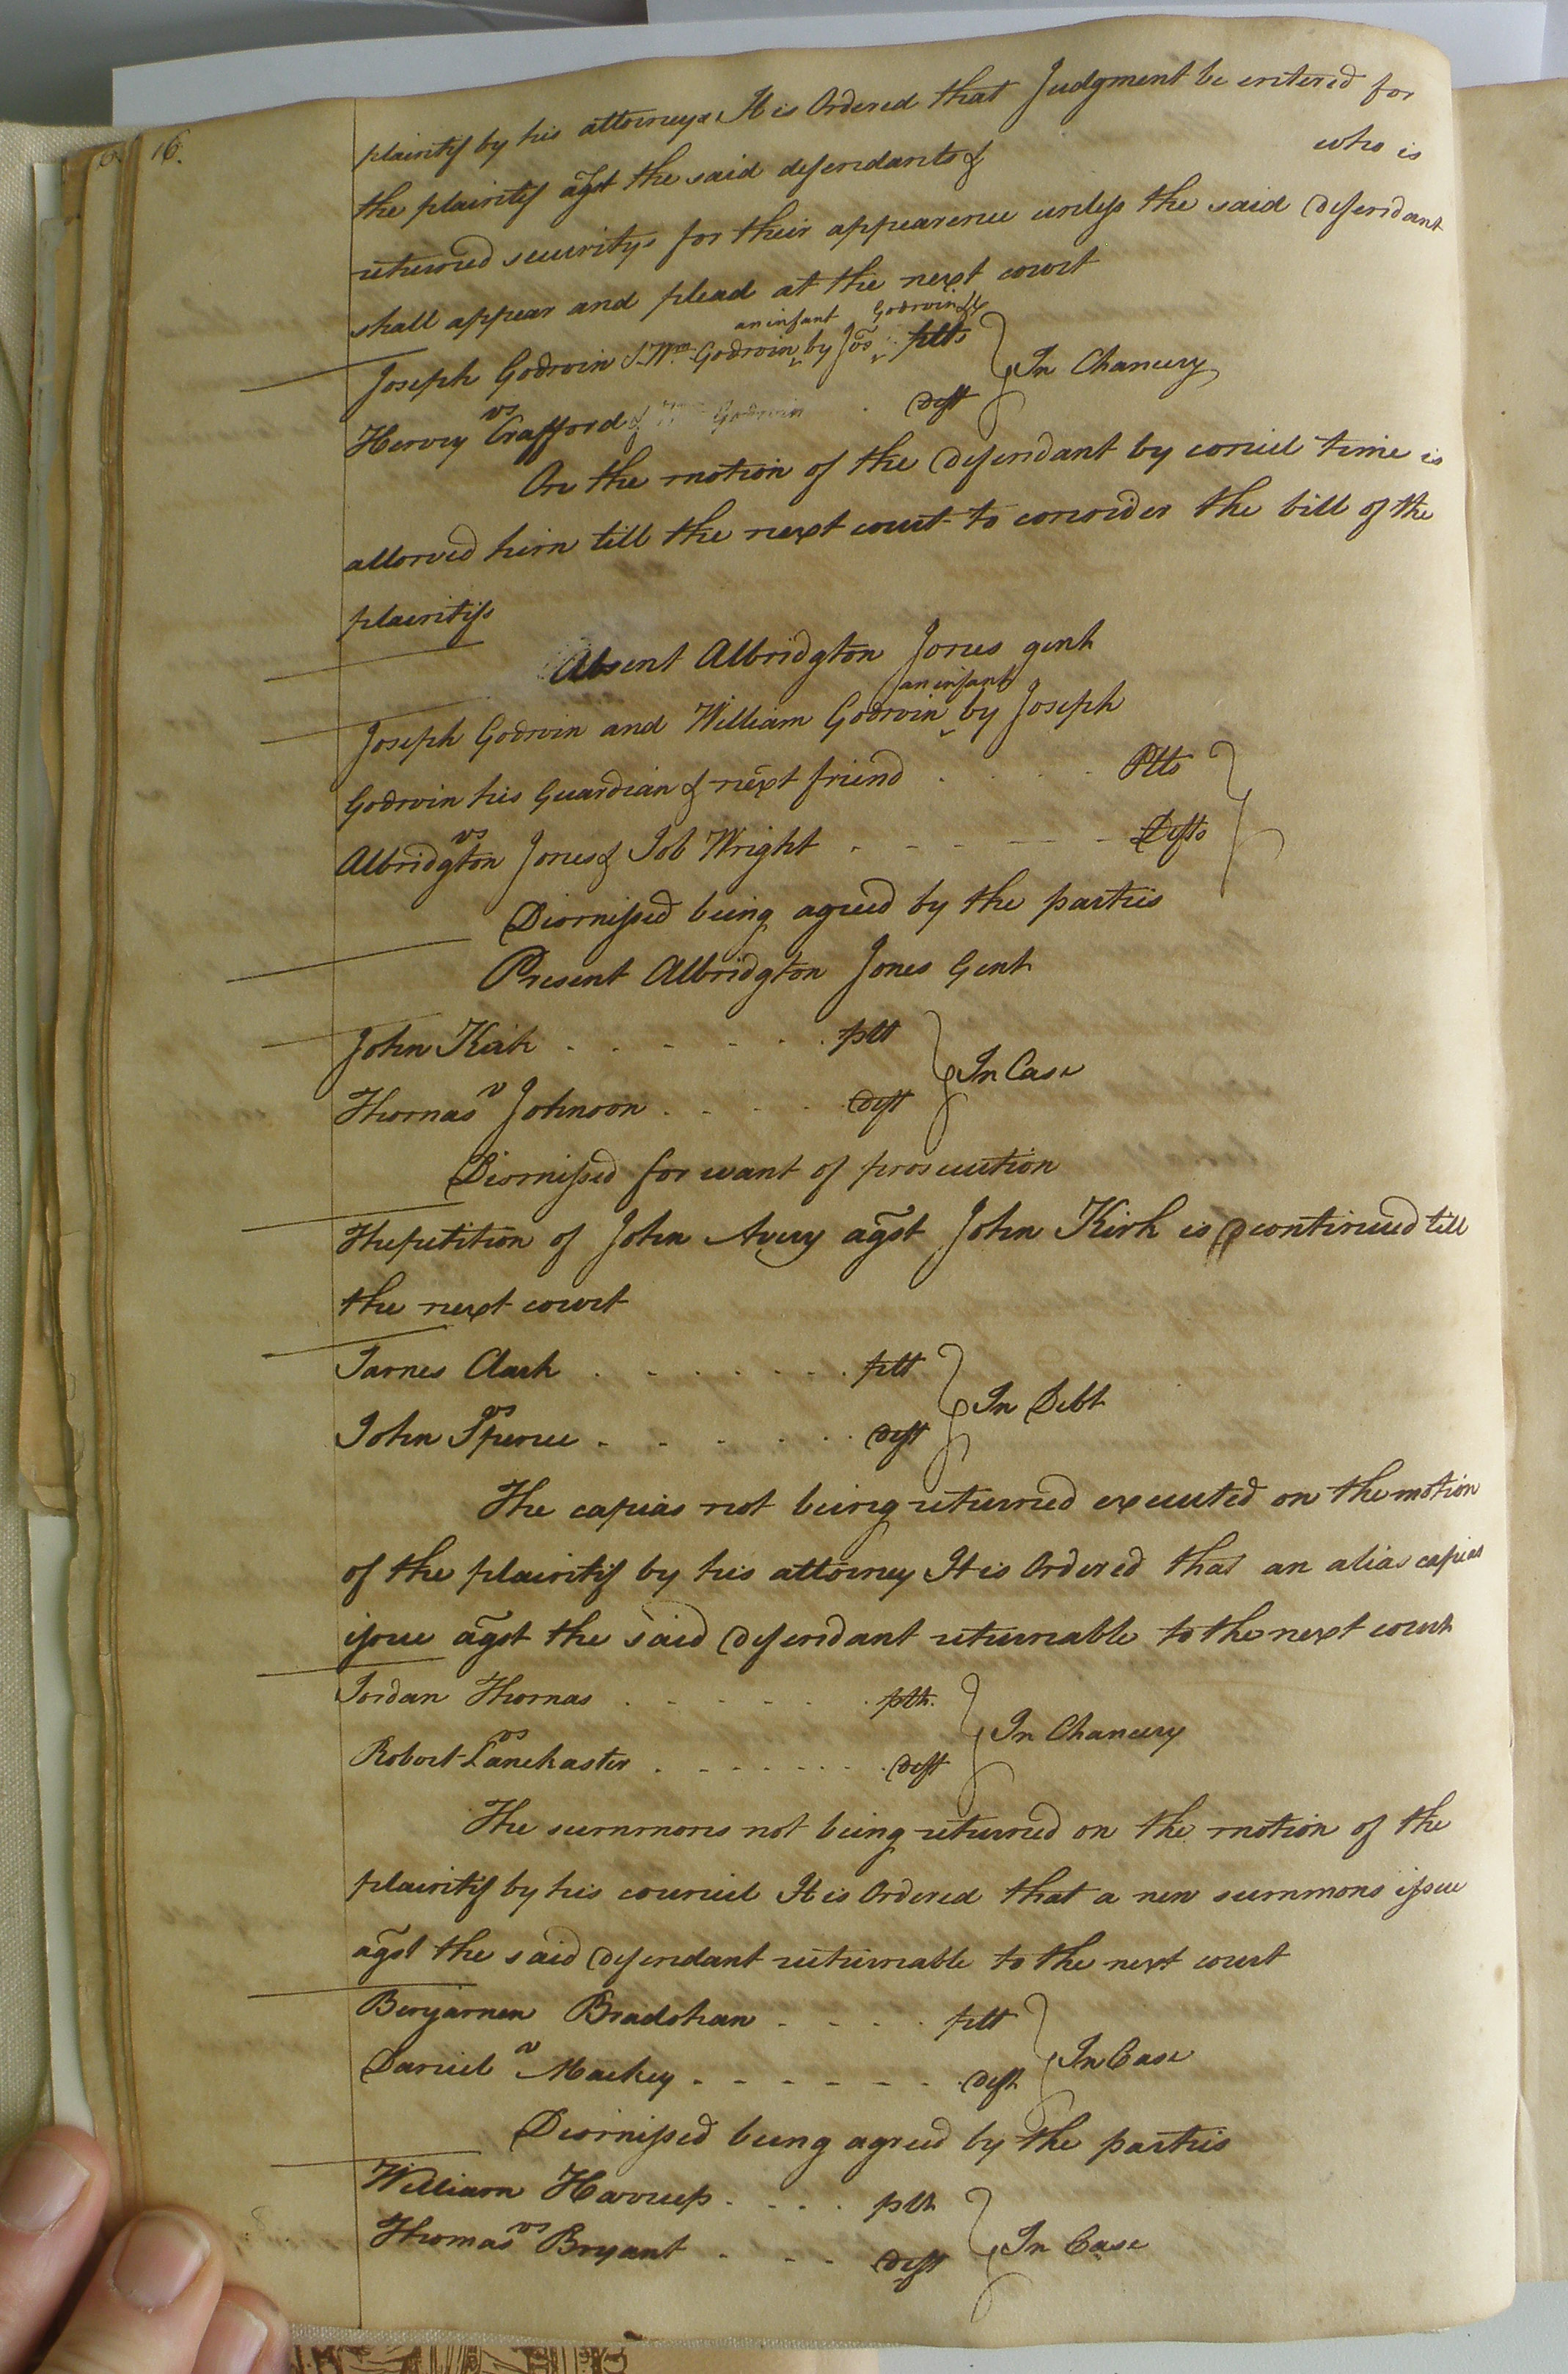 16.
plaintif by his attorneys It is Ordered that Judgment be entered for
the plaintif agst the said defendants & who is
returned securitys for their appearence unless the said Defendant
shall appear and plead at the next court
an infant Godwin &c
Joseph Godwin & Wm Godwin by Jos plts
vs In Chancery
Hervey Crafford & Wm Godwin Deft
On the motion of the Defendant by conciel time is
allowed him till the next court to consider the bill of the
plaintifs
Absent Albridgton Jones gent
an infant
Joseph Godwin and William Godwin by Joseph
Godwin his Guardian & next friend Plts
vs
Albridgton Jones & Job Wright Defts
Dismissed being agreed by the parties
Present Albridgton Jones Gent
John Kirk plt
v In Case
Thomas Johnson Deft
Dismissed for want of prosecution
The petition of John Avery agst John Kirk is continued till
the next court
James Clark plt
vs In Debt
John Spence Deft
The capias not being returned executed on the motion
of the plaintif by his attorney It is Ordered that an alias capias
issue agst the said Defendant returnable to the next court
Jordan Thomas plt.
vs In Chancery
Robert Lanckaster Deft
The summons not being returned on the motion of the
plaintif by his councel It is Ordered that a new summons issue
agst the said Defendant returnable to the next court
Benjamen Bradshaw plt
v In Case
Daniel Mackey Deft
Dismissed being agreed by the parties
William Harrup plt
vs In Case
Thomas Bryant Deft